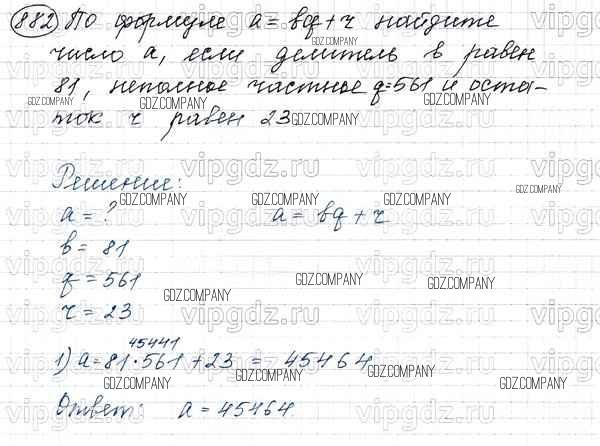 882 По формуле a = bq + r найдите
число a, если делитель b равен
81, неполное частное q=561 и оста-
ток r равен 23
Решение:
a = ? a = bq + r
b = 81
q = 561
r = 23
45441
1) a = 81 · 561 + 23 = 45464
Ответ: a = 45464.
GDZ.COMPANY
vipgdz.ru